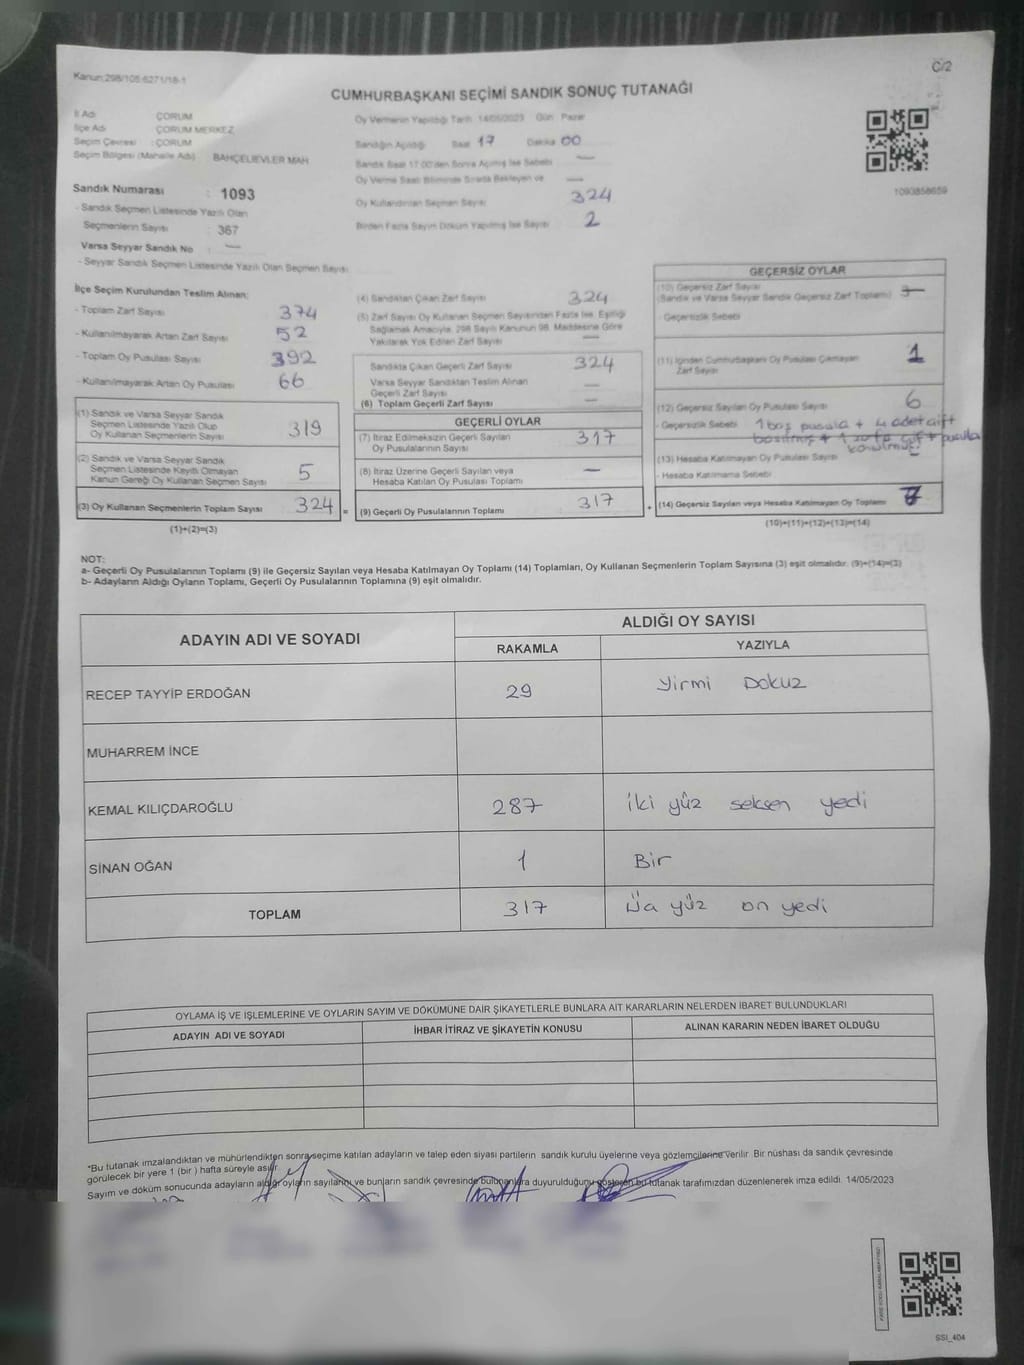 Kanun:298/105 6271/18-1
C/2
CUMHURBAŞKANI SEÇİMİ SANDIK SONUÇ TUTANAĞI
İl Adı : ÇORUM
İlçe Adı : ÇORUM MERKEZ
Seçim Çevresi : ÇORUM
Seçim Bölgesi (Mahalle Adı) : BAHÇELİEVLER MAH
Sandık Numarası : 1093
- Sandık Seçmen Listesinde Yazılı Olan
Seçmenlerin Sayısı : 367
Varsa Seyyar Sandık No : —
- Seyyar Sandık Seçmen Listesinde Yazılı Olan Seçmen Sayısı
Oy Vermenin Yapıldığı Tarih 14/05/2023 Gün Pazar
Sandığın Açıldığı Saat 17 Dakika 00
Sandık Saat 17:00'den Sonra Açılmış İse Sebebi —
Oy Verme Saati Bitiminde Sırada Bekleyen ve —
Oy Kullandırılan Seçmen Sayısı 324
Birden Fazla Sayım Döküm Yapılmış İse Sayısı 2
1093858659
İlçe Seçim Kurulundan Teslim Alınan:
- Toplam Zarf Sayısı 374
- Kullanılmayarak Artan Zarf Sayısı 52
- Toplam Oy Pusulası Sayısı 392
- Kullanılmayarak Artan Oy Pusulası 66
(1) Sandık ve Varsa Seyyar Sandık
Seçmen Listesinde Yazılı Olup
Oy Kullanan Seçmenlerin Sayısı 319
(2) Sandık ve Varsa Seyyar Sandık
Seçmen Listesinde Kayıtlı Olmayan
Kanun Gereği Oy Kullanan Seçmen Sayısı 5
(3) Oy Kullanan Seçmenlerin Toplam Sayısı 324 =
(1)+(2)=(3)
(4) Sandıktan Çıkan Zarf Sayısı 324
(5) Zarf Sayısı Oy Kullanan Seçmen Sayısından Fazla İse, Eşitliği
Sağlamak Amacıyla, 298 Sayılı Kanunun 98. Maddesine Göre
Yakılarak Yok Edilen Zarf Sayısı —
Sandıkta Çıkan Geçerli Zarf Sayısı 324
Varsa Seyyar Sandıktan Teslim Alınan
Geçerli Zarf Sayısı —
(6) Toplam Geçerli Zarf Sayısı —
GEÇERLİ OYLAR
(7) İtiraz Edilmeksizin Geçerli Sayılan
Oy Pusulalarının Sayısı 317
(8) İtiraz Üzerine Geçerli Sayılan veya
Hesaba Katılan Oy Pusulası Toplamı —
(9) Geçerli Oy Pusulalarının Toplamı 317 +
GEÇERSİZ OYLAR
(10) Geçersiz Zarf Sayısı
(Sandık ve Varsa Seyyar Sandık Geçersiz Zarf Toplamı)
- Geçersizlik Sebebi
(11) İçinden Cumhurbaşkanı Oy Pusulası Çıkmayan
Zarf Sayısı 1
(12) Geçersiz Sayılan Oy Pusulası Sayısı 6
- Geçersizlik Sebebi 1 boş pusula + 4 adet çift
basılmış + 1 zarfa çift pusula
konulmuş
(13) Hesaba Katılmayan Oy Pusulası Sayısı
- Hesaba Katılmama Sebebi
(14) Geçersiz Sayılan veya Hesaba Katılmayan Oy Toplamı 7
(10)+(11)+(12)+(13)=(14)
NOT:
a- Geçerli Oy Pusulalarının Toplamı (9) ile Geçersiz Sayılan veya Hesaba Katılmayan Oy Toplamı (14) Toplamları, Oy Kullanan Seçmenlerin Toplam Sayısına (3) eşit olmalıdır. (9)+(14)=(3)
b- Adayların Aldığı Oyların Toplamı, Geçerli Oy Pusulalarının Toplamına (9) eşit olmalıdır.
ADAYIN ADI VE SOYADI
ALDIĞI OY SAYISI
RAKAMLA YAZIYLA
RECEP TAYYİP ERDOĞAN 29 Yirmi Dokuz
MUHARREM İNCE
KEMAL KILIÇDAROĞLU 287 iki yüz seksen yedi
SİNAN OĞAN 1 Bir
TOPLAM 317 Üç yüz on yedi
OYLAMA İŞ VE İŞLEMLERİNE VE OYLARIN SAYIM VE DÖKÜMÜNE DAİR ŞİKAYETLERLE BUNLARA AİT KARARLARIN NELERDEN İBARET BULUNDUKLARI
ADAYIN ADI VE SOYADI İHBAR İTİRAZ VE ŞİKAYETİN KONUSU ALINAN KARARIN NEDEN İBARET OLDUĞU
*Bu tutanak imzalandıktan ve mühürlendikten sonra seçime katılan adayların ve talep eden siyasi partilerin sandık kurulu üyelerine veya gözlemcilerine verilir. Bir nüshası da sandık çevresinde
görülecek bir yere 1 (bir ) hafta süreyle asılır.
Sayım ve döküm sonucunda adayların aldığı oyların sayılarını ve bunların sandık çevresinde bulunanlara duyurulduğunu gösteren bu tutanak tarafımızdan düzenlenerek imza edildi. 14/05/2023
SSI_404